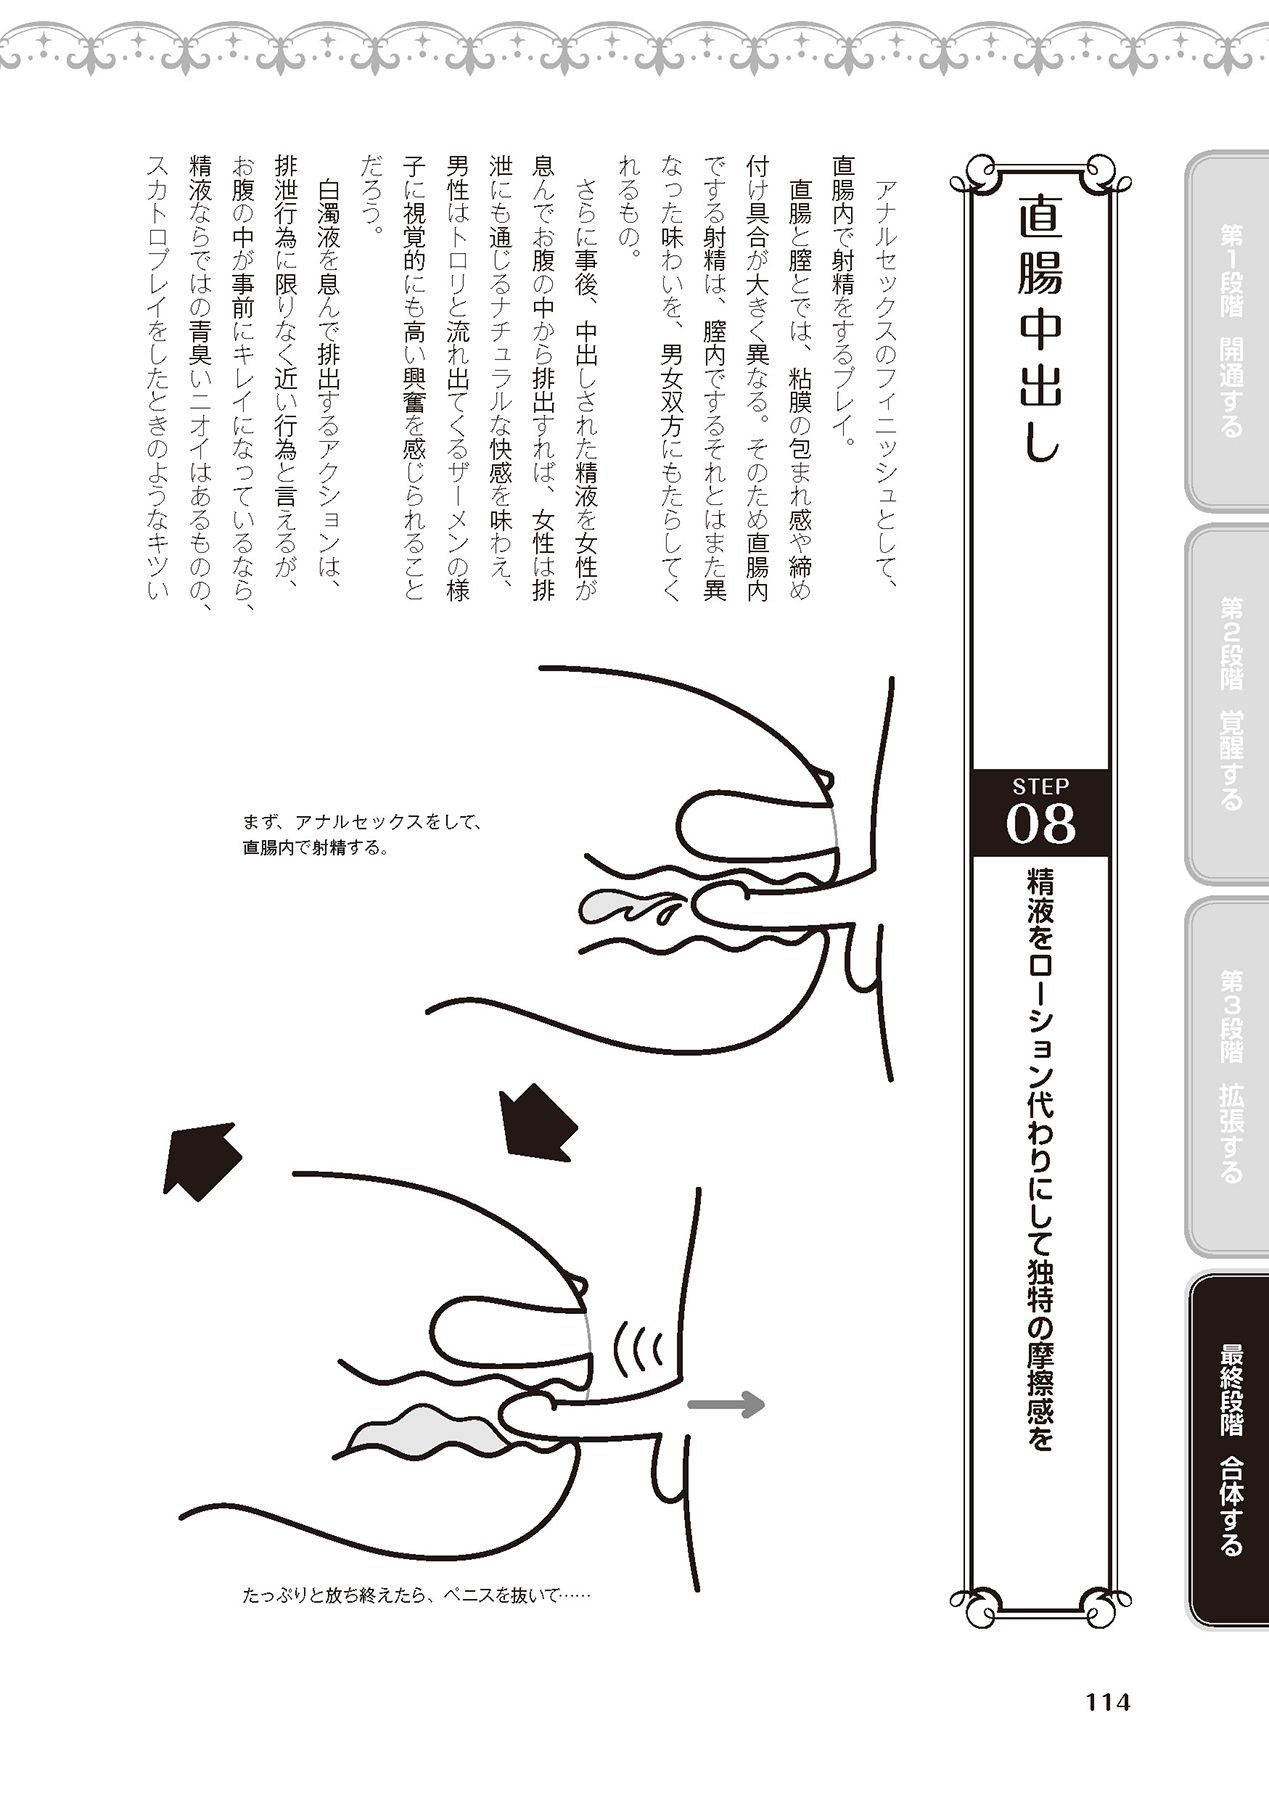 第1段階 開通する
第2段階 覚醒する
第3段階 拡張する
最終段階 合体する
直腸中出し
STEP
08
精液をローション代わりにして独特の摩擦感を
アナルセックスのフィニッシュとして、
直腸内で射精をするプレイ。
直腸と膣とでは、粘膜の包まれ感や締め
付け具合が大きく異なる。そのため直腸内
でする射精は、膣内でするそれとはまた異
なった味わいを、男女双方にもたらしてく
れるもの。
さらに事後、中出しされた精液を女性が
息んでお腹の中から排出すれば、女性は排
泄にも通じるナチュラルな快感を味わえ、
男性はトロリと流れ出てくるザーメンの様
子に視覚的にも高い興奮を感じられること
だろう。
白濁液を息んで排出するアクションは、
排泄行為に限りなく近い行為と言えるが、
お腹の中が事前にキレイになっているなら、
精液ならではの青臭いニオイはあるものの、
スカトロプレイをしたときのようなキツい
まず、アナルセックスをして、
直腸内で射精する。
たっぷりと放ち終えたら、ペニスを抜いて……
114